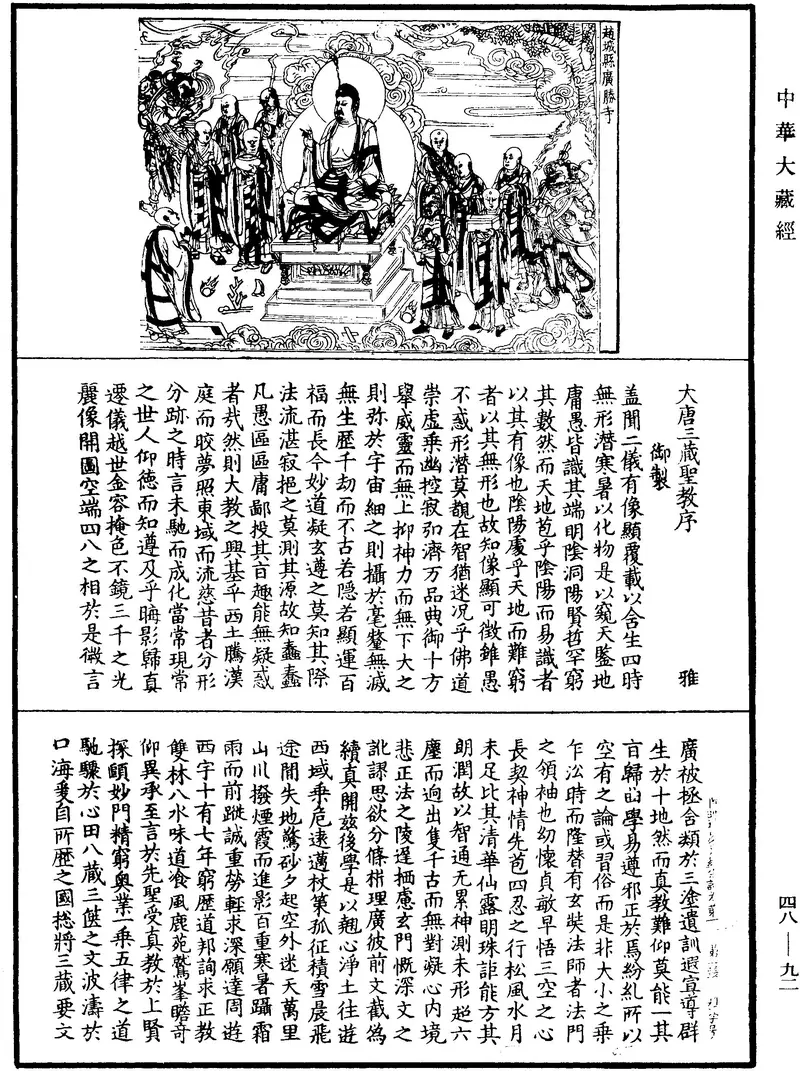 中華大藏經
趙城縣廣勝寺
大唐三藏聖教序
雅
御製
盖聞二儀有像顯覆載以含生四時
無形潛寒暑以化物是以窺天鑒地
庸愚皆識其端明陰洞陽賢哲罕窮
其數然而天地苞乎陰陽而易識者
以其有像也陰陽處乎天地而難窮
者以其無形也故知像顯可徵雖愚
不惑形潛莫覩在智猶迷况乎佛道
崇虛乘幽控寂弘濟万品典御十方
舉威靈而無上抑神力而無下大之
則弥於宇宙細之則攝於毫釐無滅
無生歷千劫而不古若隱若顯運百
福而長今妙道凝玄遵之莫知其際
法流湛寂挹之莫測其源故知蠢蠢
凡愚區區庸鄙投其旨趣能無疑惑
者㢤然則大教之興基乎西土騰漢
庭而皎夢照東域而流慈昔者分形
分跡之時言未馳而成化當常現常
之世人仰德而知遵及乎晦影歸真
遷儀越世金容掩色不鏡三千之光
麗像開圖空端四八之相於是微言
廣被拯含類於三塗遺訓遐宣導群
生於十地然而真教難仰莫能一其
旨歸曲學易遵邪正於焉紛糺所以
空有之論或習俗而是非大小之乘
乍訟時而隆替有玄奘法師者法門
之領袖也幼懷貞敏早悟三空之心
長契神情先苞四忍之行松風水月
未足比其清華仙露明珠詎能方其
朗潤故以智通无累神測未形超六
塵而迥出隻千古而無對凝心内境
悲正法之陵遲栖慮玄門慨深文之
訛謬思欲分條析理廣彼前文截僞
續真開兹後學是以翹心淨土往遊
西域乘危遠邁杖策孤征積雪晨飛
途間失地驚砂夕起空外迷天萬里
山川撥煙霞而進影百重寒暑躡霜
雨而前蹤誠重勞輕求深願達周遊
西宇十有七年窮歷道邦詢求正教
雙林八水味道飡風鹿苑鷲峯瞻奇
仰異承至言於先聖受真教於上賢
探賾妙門精窮奥業一乘五律之道
馳驟於心田八藏三篋之文波濤於
口海爰自所歷之國揔將三藏要文
四八—九二